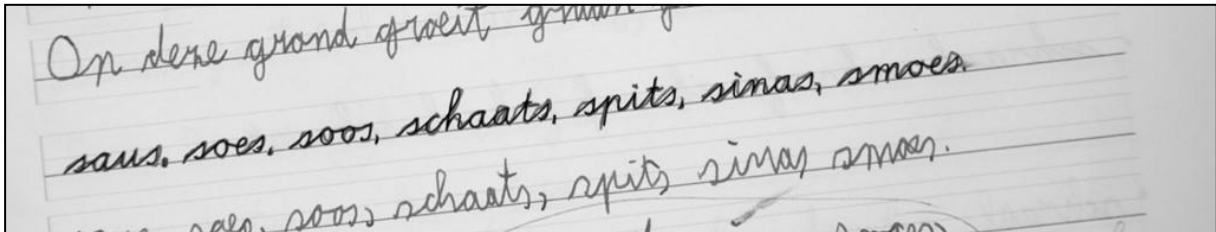 On deze grond groeit
saus, soes, soos, schaats, spits, sinas, smoes.
soos, schaats, spits sinas smoes.